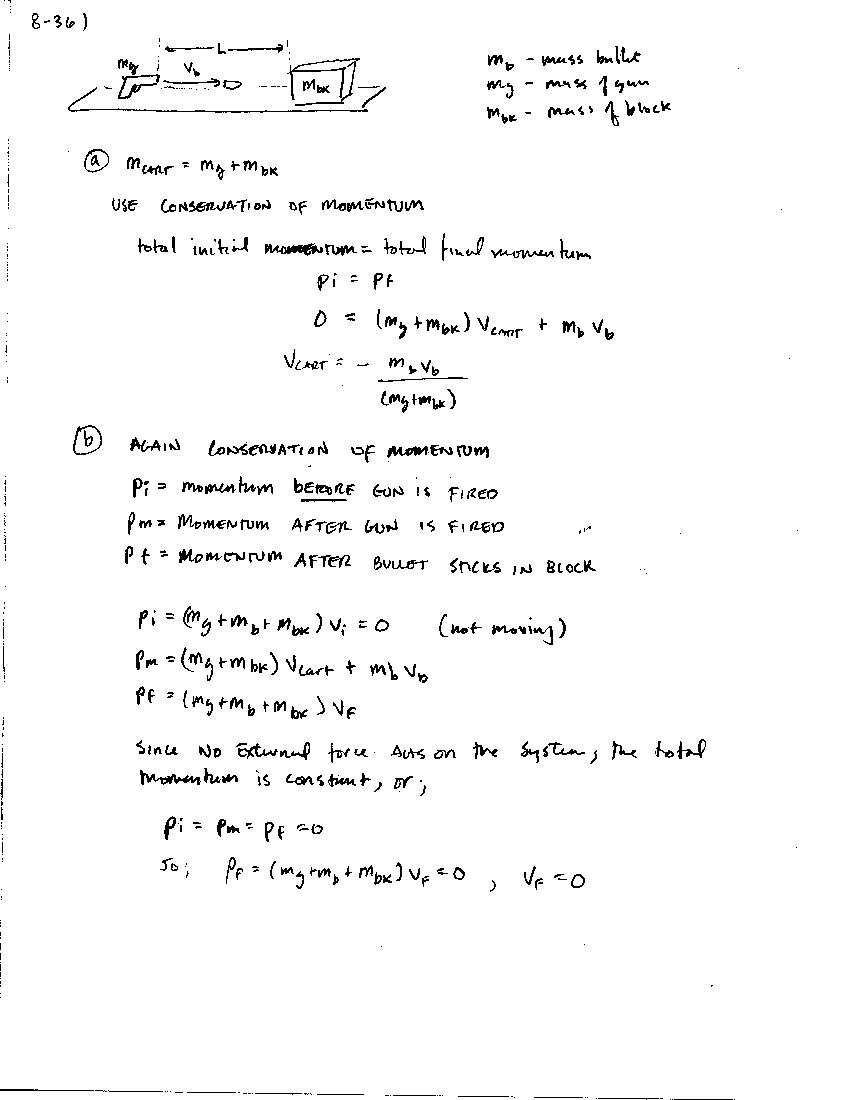 8-36)
L
m_g
V_b
m_bk
m_b - mass bullet
m_g - mass of gun
m_bk - mass of block
(a) m_CART = m_g + m_bk
USE CONSERVATION OF MOMENTUM
total initial MOMENTUM = total final momentum
Pi = Pf
0 = (m_g + m_bk) V_CART + m_b V_b
V_CART = - m_b V_b
(m_g + m_bk)
(b) AGAIN CONSERVATION OF MOMENTUM
Pi = momentum BEFORE GUN IS FIRED
Pm = MOMENTUM AFTER GUN IS FIRED
Pf = MOMENTUM AFTER BULLET STICKS IN BLOCK
Pi = (m_g + m_b + m_bk) V_i = 0 (not moving)
Pm = (m_g + m_bk) V_cart + m_b V_b
Pf = (m_g + m_b + m_bk) V_F
Since NO External force Acts on the System, the total
momentum is constant, or;
Pi = Pm = Pf = 0
so; P_F = (m_g + m_b + m_bk) V_F = 0 , V_F = 0